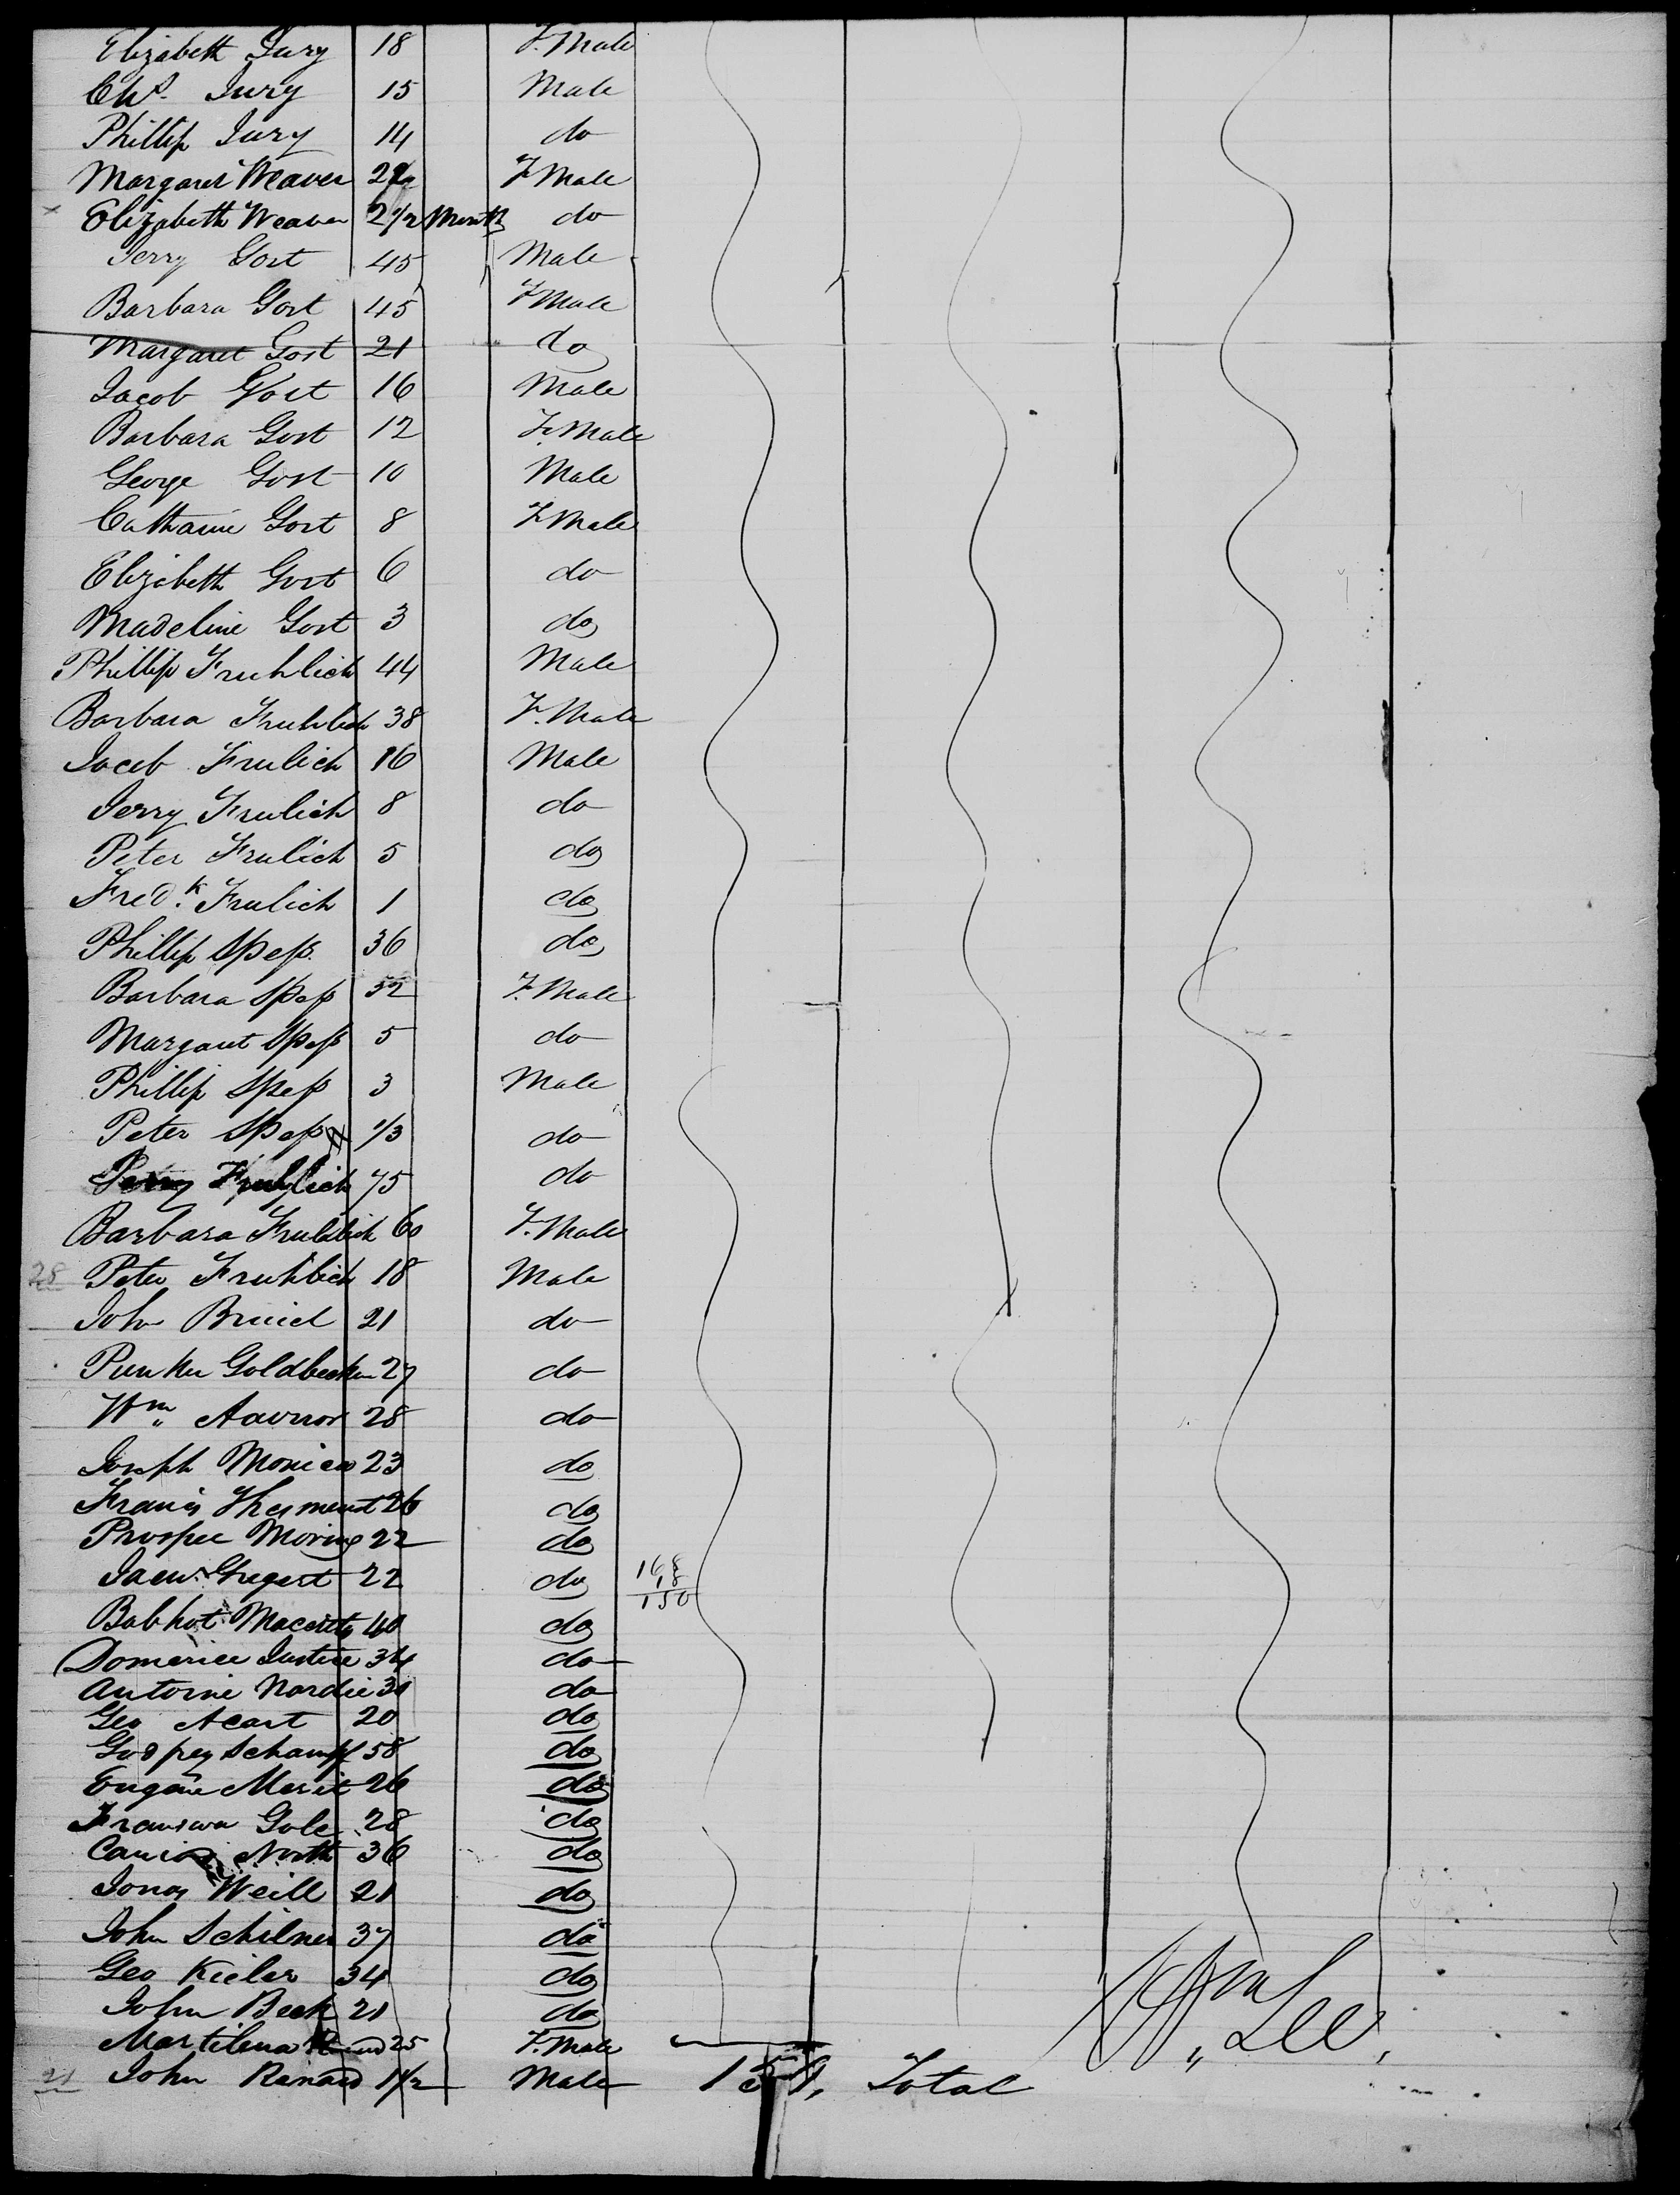 Elizabeth Jury 18 F. Male
Chs. Jury 15 Male
Phillip Jury 14 do
Margaret Weaver F Male
Elizabeth Weaver 2 1/2 Month do
Jerry Gost 45 Male
Barbara Gost 45 F Male
Margaret Gost 21 do
Jacob Gost 16 Male
Barbara Gost 12 F. Male
George Gost 10 Male
Catharine Gost 8 F Male
Elizabeth Gost 6 do
Madeline Gost 3 do
Phillip Fruhlich 44 Male
Barbara Fruhlich 38 F. Male
Jacob Frulich 16 Male
Jerry Frulich 8 do
Peter Frulich 5 do
Fredk. Frulich 1 do
Phillip Spess 36 do
Barbara Spess 32 F. Male
Margaret Spess 5 do
Phillip Spess 3 Male
Peter Spess 1/3 do
Fruhlich 75 do
Barbara Fruhlich 60 F. Male
28 Peter Fruhlich 18 Male
John Bruid 21 do
Goldbecker 27 do
Wm 28 do
Joseph 23 do
Francis 26 do
Prosper 22 do
22 do 168
18
150
40 do
Justice 34 do
Antoine Nardie 30 do
Geo Acart 20 do
Godfrey Schampf 58 do
Eugane Merit 26 do
Gole 28 do
North 36 do
Jonas Weill 21 do
John Schilner 37 do
Geo Kieler 34 do
John Beck 21 do
Martilena 25 F. Male
21 John Renard 1 1/2 Male Total
Wm Lee,